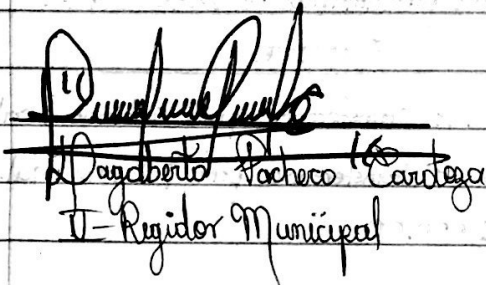 Dagoberto Pacheco Cardoza
I-Regidor Municipal